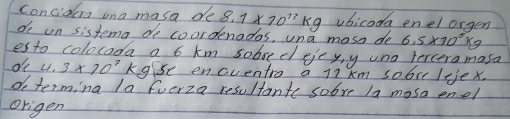 Considera una masa de 8.1 x 10¹² kg ubicada en el orgen
de un sistema de coordenadas, una masa de 6.5 x 10⁹ kg
esta colocada a 6 km sobre el eje y, y una tercera masa
de 4.3 x 10⁹ kg se encuentra a 11 km sobre leje x.
determina la fuerza resultante sobre la masa en el
origen